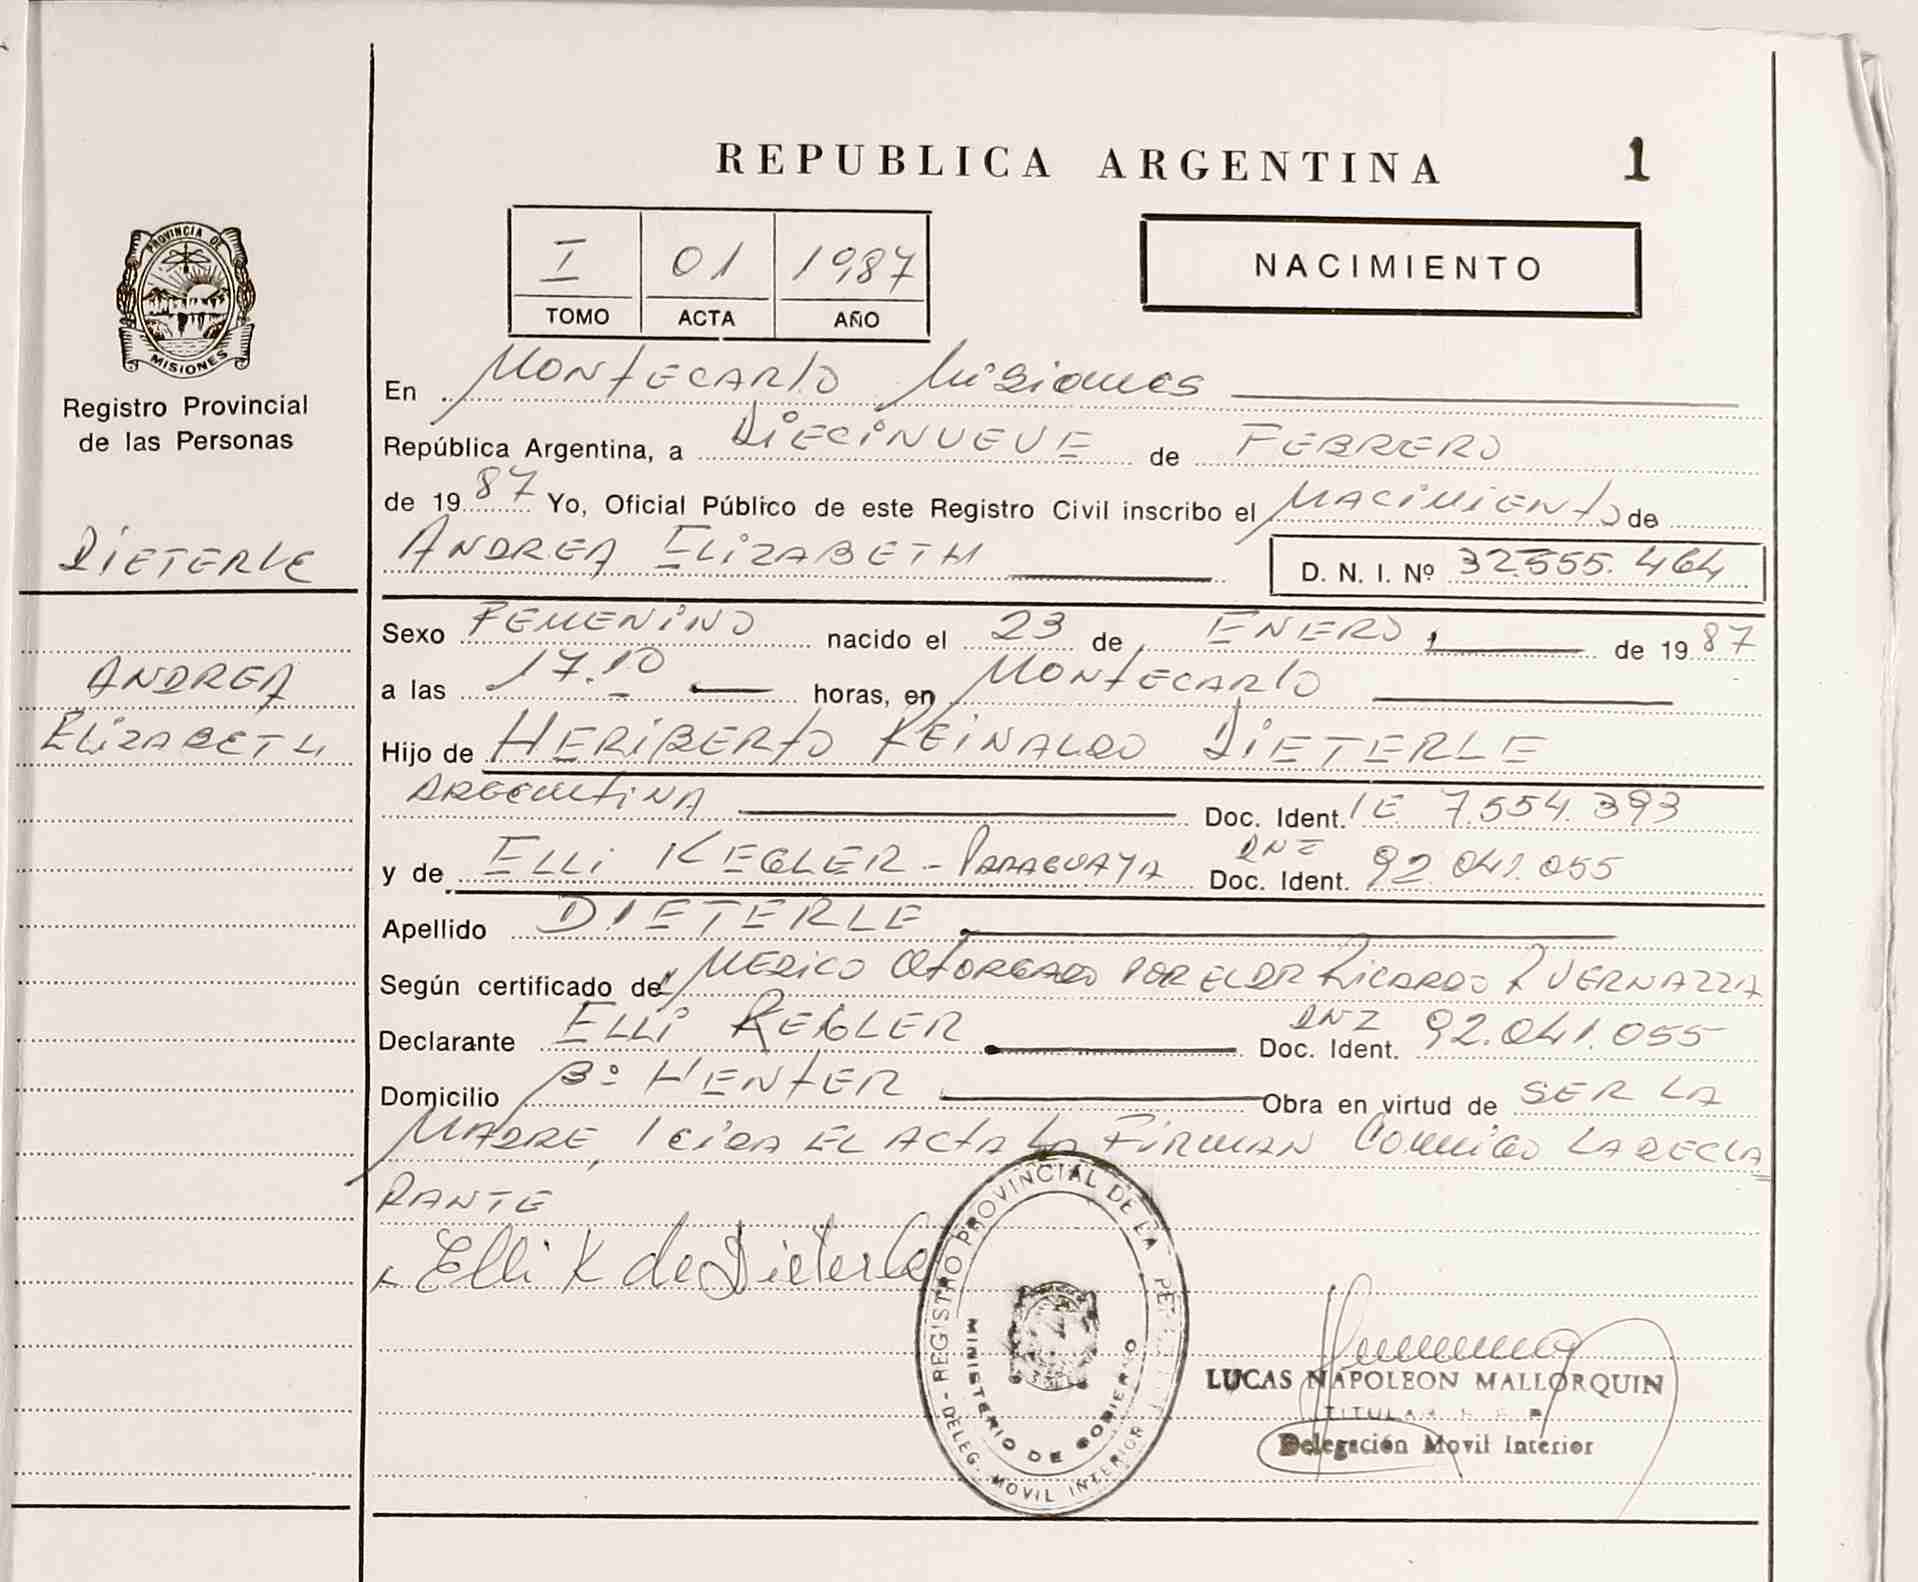 REPUBLICA ARGENTINA 1
I 01 1987
TOMO ACTA AÑO
NACIMIENTO
PROVINCIA DE
MISIONES
Registro Provincial
de las Personas
DIETERLE
ANDREA
ELIZABETH
En MONTECARLO Misiones
República Argentina, a DIECINUEVE de FEBRERO
de 1987 Yo, Oficial Público de este Registro Civil inscribo el NACIMIENTO de
ANDREA ELIZABETH D. N. I. Nº 32.555.464
Sexo FEMENINO nacido el 23 de ENERO, de 1987
a las 17.10 horas, en MONTECARLO
Hijo de HERIBERTO REINALDO DIETERLE
ARGENTINA Doc. Ident. LE 7.554.393
y de ELLI KEGLER - PARAGUAYA Doc. Ident. DNI 92.041.055
Apellido DIETERLE
Según certificado de MEDICO OTORGADO POR EL DR RICARDO R VERNAZZA
Declarante ELLI KEGLER Doc. Ident. DNI 92.041.055
Domicilio Bº HENTER Obra en virtud de SER LA
MADRE, leida EL ACTA LA FIRMAN Conmigo LA DECLA
RANTE
Elli K de Dieterle
REGISTRO PROVINCIAL DE LA
MINISTERIO DE GOBIERNO
DELEG. MOVIL INTERIOR
LUCAS NAPOLEON MALLORQUIN
TITULAR
Delegación Movil Interior